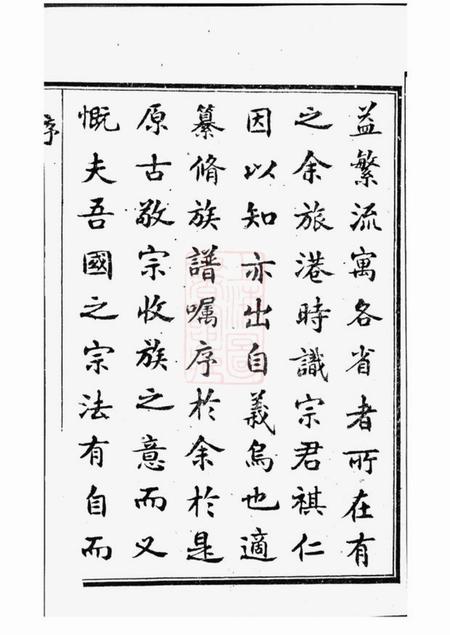 益繁流寓各省者所在有
之余旅港時識宗君祺仁
因以知亦出自義烏也適
纂脩族譜囑序於余於是
原古敬宗收族之意而又
慨夫吾國之宗法有自而
序